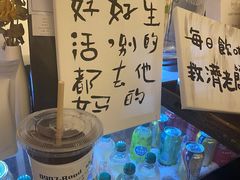 好好生
活別的
都去他
媽的
每日飲
救濟老闆